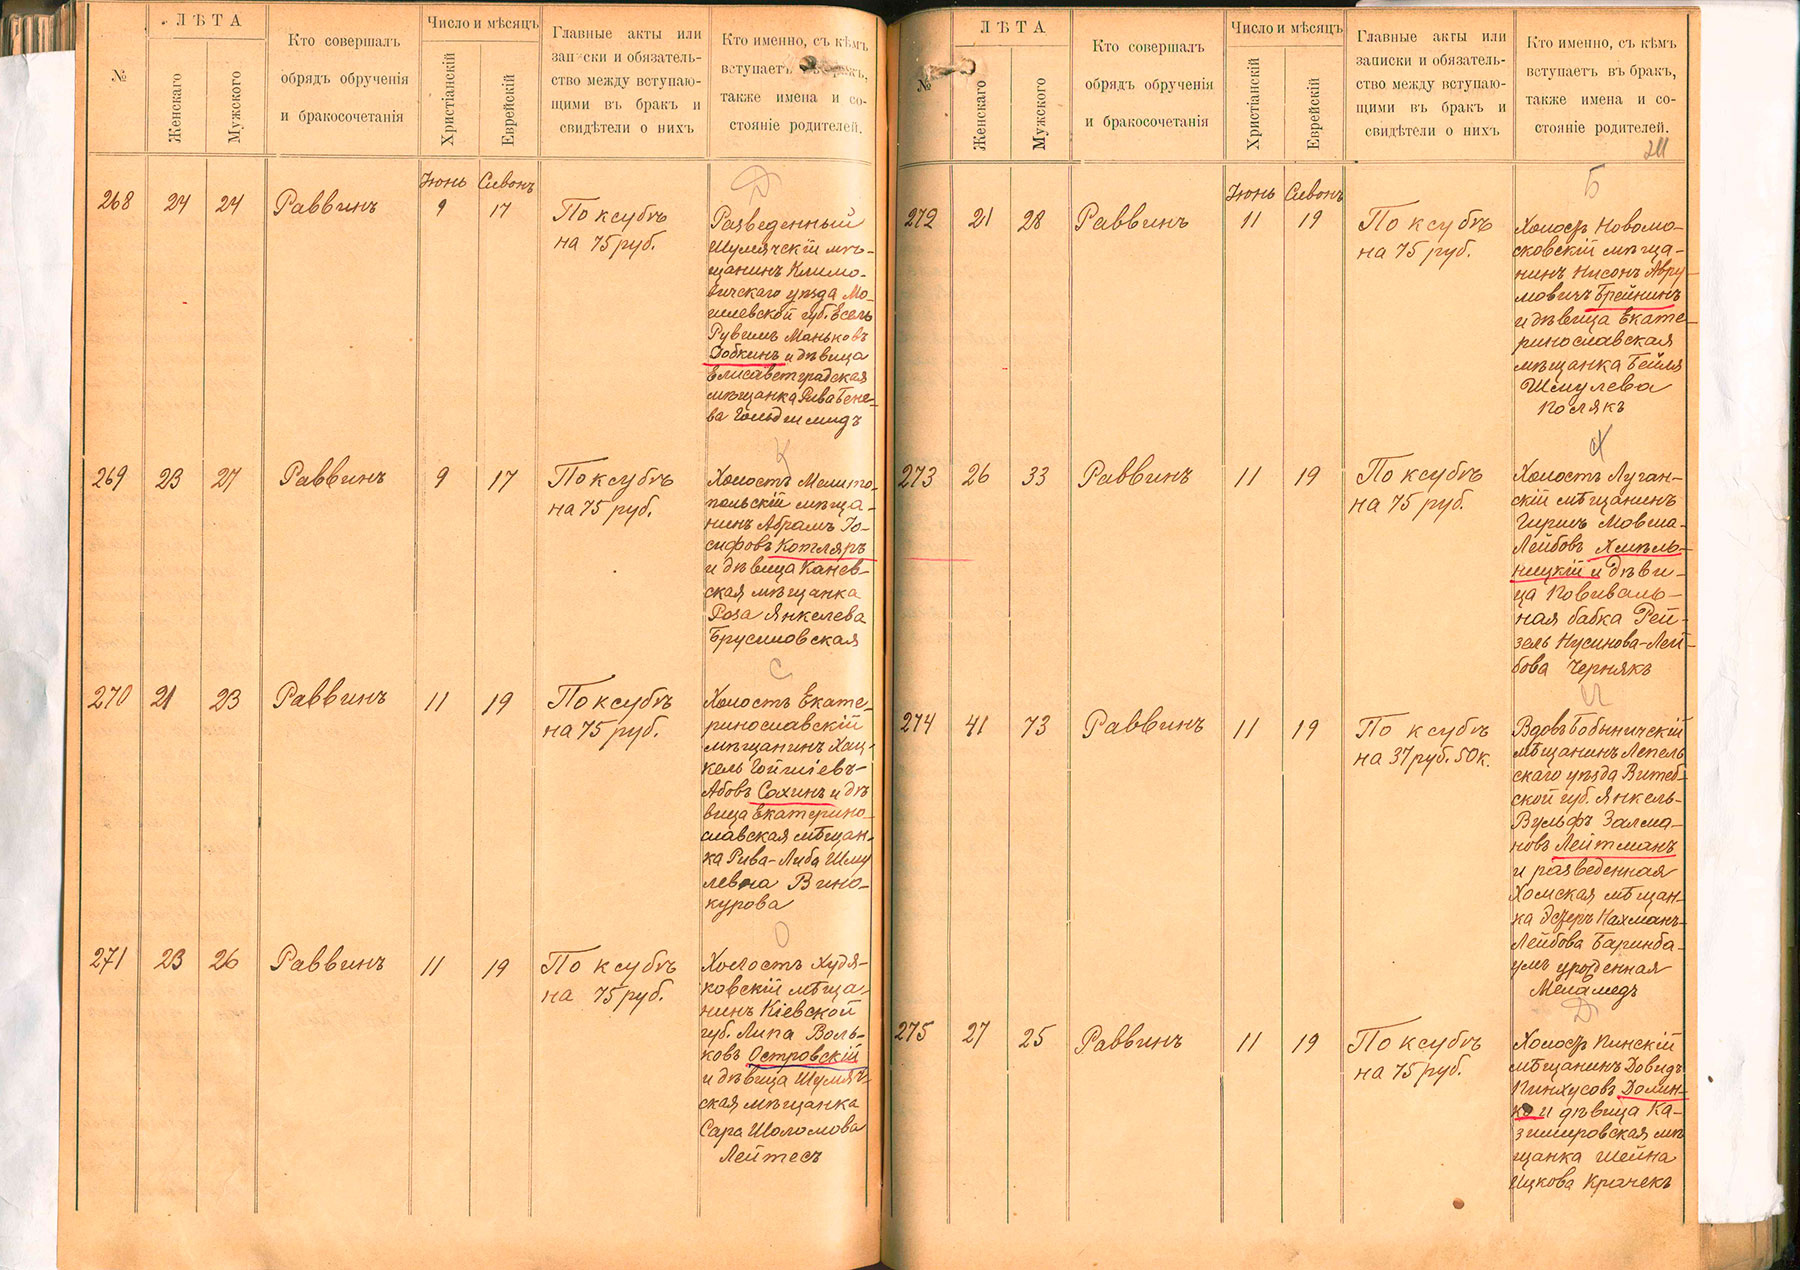 №
ЛѢТА
Женскаго
Мужского
Кто совершалъ
обрядъ обрученія
и бракосочетанія
Число и мѣсяцъ
Христіанскій
Еврейскій
Главные акты или
записки и обязатель-
ство между вступаю-
щими въ бракъ и
свидѣтели о нихъ
Кто именно, съ кѣмъ
вступаетъ въ бракъ,
также имена и со-
стояніе родителей.
Іюнь Сивонъ
Д
268 24 24 Раввинъ 9 17
По ксубѣ
на 75 руб.
Разведенный
Шумячскій мѣ-
щанинъ Климо-
вичскаго уѣзда Мо-
гилевской губ. Есель
Рувимъ Маньковъ
и дѣвица
Елисаветградская
мѣщанка Рива Бене-
ва Гольдшмидъ
К
269 23 27 Раввинъ 9 17
По ксубѣ
на 75 руб.
Холостъ Мелито-
польскій мѣща-
нинъ Абрамъ Іо-
сифовъ Котляръ
и дѣвица Канев-
ская мѣщанка
Роза Янкелева
Брусиловская
С
270 21 23 Раввинъ 11 19
По ксубѣ
на 75 руб.
Холостъ Екате-
ринославскій
мѣщанинъ Хац-
кель
Абовъ Сохинъ и дѣ
вица Екатерино-
славская мѣщан-
ка Рива-Либа Шму
левна Вино-
курова
О
271 23 26 Раввинъ 11 19
По ксубѣ
на 75 руб.
Холостъ Худя-
ковскій мѣща-
нинъ Кіевской
губ. Липа Воль-
ковъ Островскій
и дѣвица Шумяч-
ская мѣщанка
Сара Шоломова
Лейтесъ
№
ЛѢТА
Женскаго
Мужского
Кто совершалъ
обрядъ обрученія
и бракосочетанія
Число и мѣсяцъ
Христіанскій
Еврейскій
Главные акты или
записки и обязатель-
ство между вступаю-
щими въ бракъ и
свидѣтели о нихъ
Кто именно, съ кѣмъ
вступаетъ въ бракъ,
также имена и со-
стояніе родителей.
Іюнь Сивонъ
Б
272 21 28 Раввинъ 11 19
По ксубѣ
на 75 руб.
Холостъ Новомо-
сковскій мѣща-
нинъ Нисонъ Авру-
мовичъ Брейнинъ
и дѣвица Екате-
ринославская
мѣщанка Бейля
Шмулева
Полякъ
Х
273 26 33 Раввинъ 11 19
По ксубѣ
на 75 руб.
Холостъ Луган-
скій мѣщанинъ
Гиршъ Мовша-
Лейбовъ Хмѣль-
ницкій и дѣви-
ца Повиваль-
ная бабка Рей-
зель Нусинова-Лей-
бова Чернякъ
274 41 73 Раввинъ 11 19
По ксубѣ
на 37 руб. 50 к.
Вдовъ Бобыничскій
мѣщанинъ Лепель-
скаго уѣзда Витеб-
ской губ. Янкель-
Вульфъ Залма-
новъ Лейтманъ
и разведенная
Хомская мѣщан-
ка Нахманъ-
Лейбова Баринба-
умъ урожденная
Меламедъ
Д
275 27 25 Раввинъ 11 19
По ксубѣ
на 75 руб.
Холостъ Пинскій
мѣщанинъ Довидъ
Пинхусовъ Долин-
ко и дѣвица Ка-
зимировская мѣ
щанка Шейна
Ицкова Крачекъ